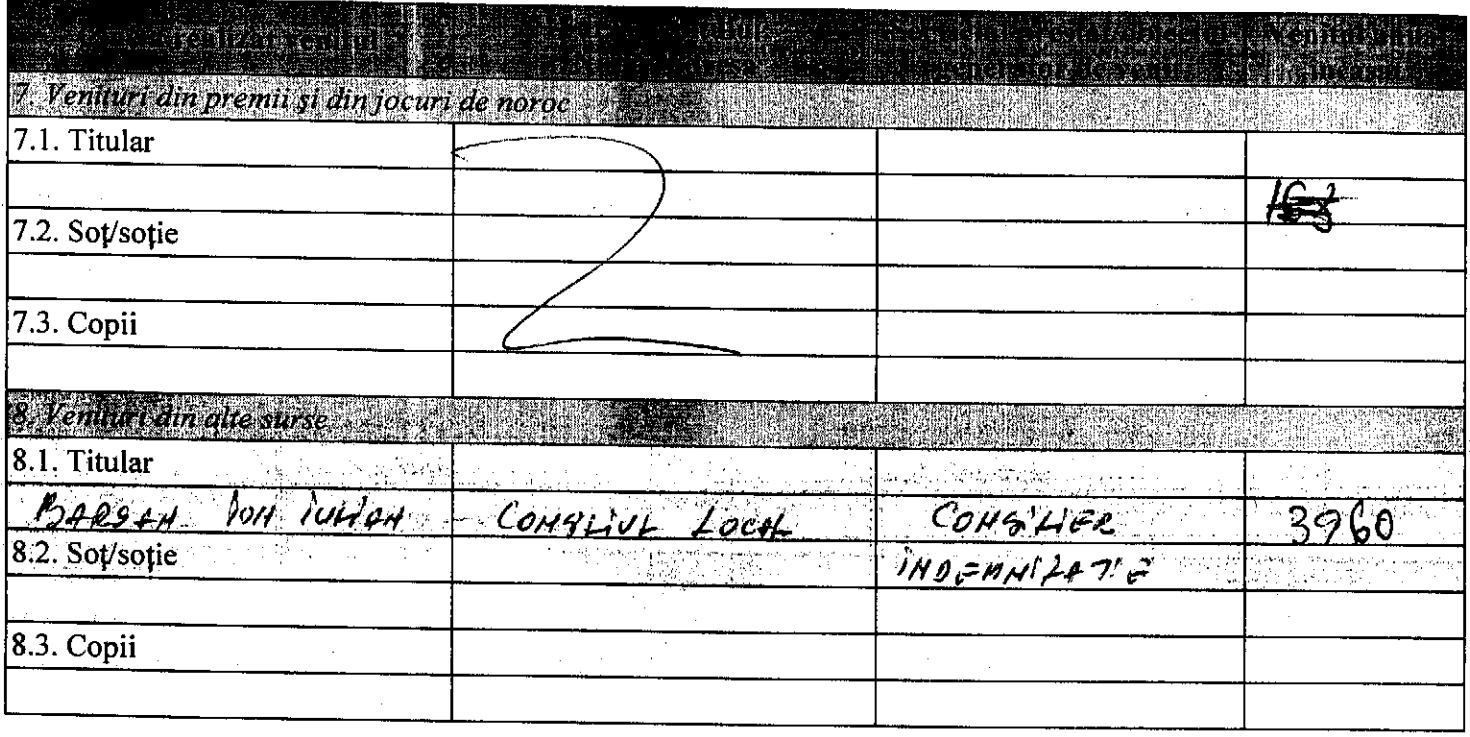 realizat venitul
7. Venituri din premii și din jocuri de noroc
7.1. Titular
7.2. Soț/soție
7.3. Copii
8. Venituri din alte surse
8.1. Titular
BARSAN ION IULIAN CONSILIUL LOCAL CONSILIER 3960
8.2. Soț/soție INDEMNIZATIE
8.3. Copii